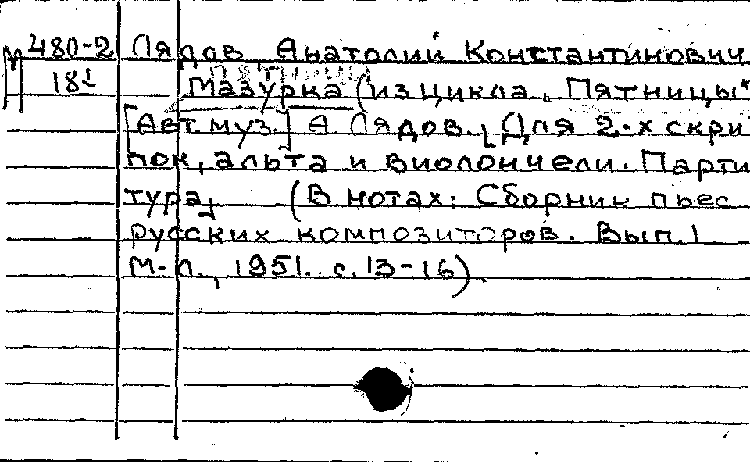 480-2 Лядов, Анатолий Константинович
18¹ Мазурка (из цикла „Пятницы"
[Авт. муз.] А Лядов. [Для 2-х скри
пок, альта и виолончели. Парти
тура] (В нотах: Сборник пьес
русских композиторов. Вып. 1
М-Л., 1951. с. 13-16).